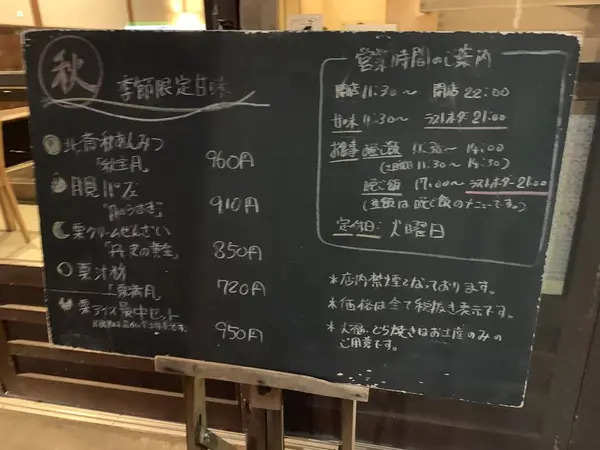 秋
季節限定甘味
あんみつ
960円
月見パフェ
「月のうさぎ」
910円
栗クリームぜんざい
850円
栗汁粉
720円
栗アイス最中セット
950円
営業時間のご案内
開店 11:30〜 閉店 22:00
甘味 11:30〜 ラストオーダー 21:00
お食事 昼ご飯 11:30〜14:00
11:30〜14:30)
晩ご飯 17:00〜 ラストオーダー 21:00
は晩ご飯のメニューです。)
定休日: 火曜日
*店内禁煙となっております。
*価格は全て税抜き表示です。
*大福、どら焼きはお土産のみの
ご用意です。